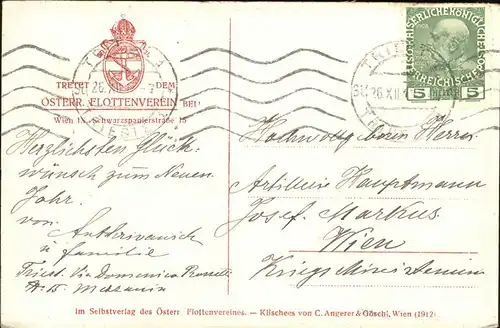 KAISERLICHE KÖNIGLICHE
ÖSTERREICHISCHE
5 HELLER 5
TRIEST
26.XII
TRIESTE
TRETET DEM
ÖSTERR. FLOTTENVEREIN BEI!
Wien IX., Schwarzspanierstraße 15
Herzlichsten Glück-
wünsch zum Neuen
Jahr.
von
u familie
Triest. Via Domenico Rossetti
Hochwohlgeboren Herrn
Artillerie Hauptmann
Josef Markus
Wien
Kriegsministerium
Im Selbstverlag des Österr. Flottenvereines. — Klischees von C. Angerer & Göschl, Wien (1912)